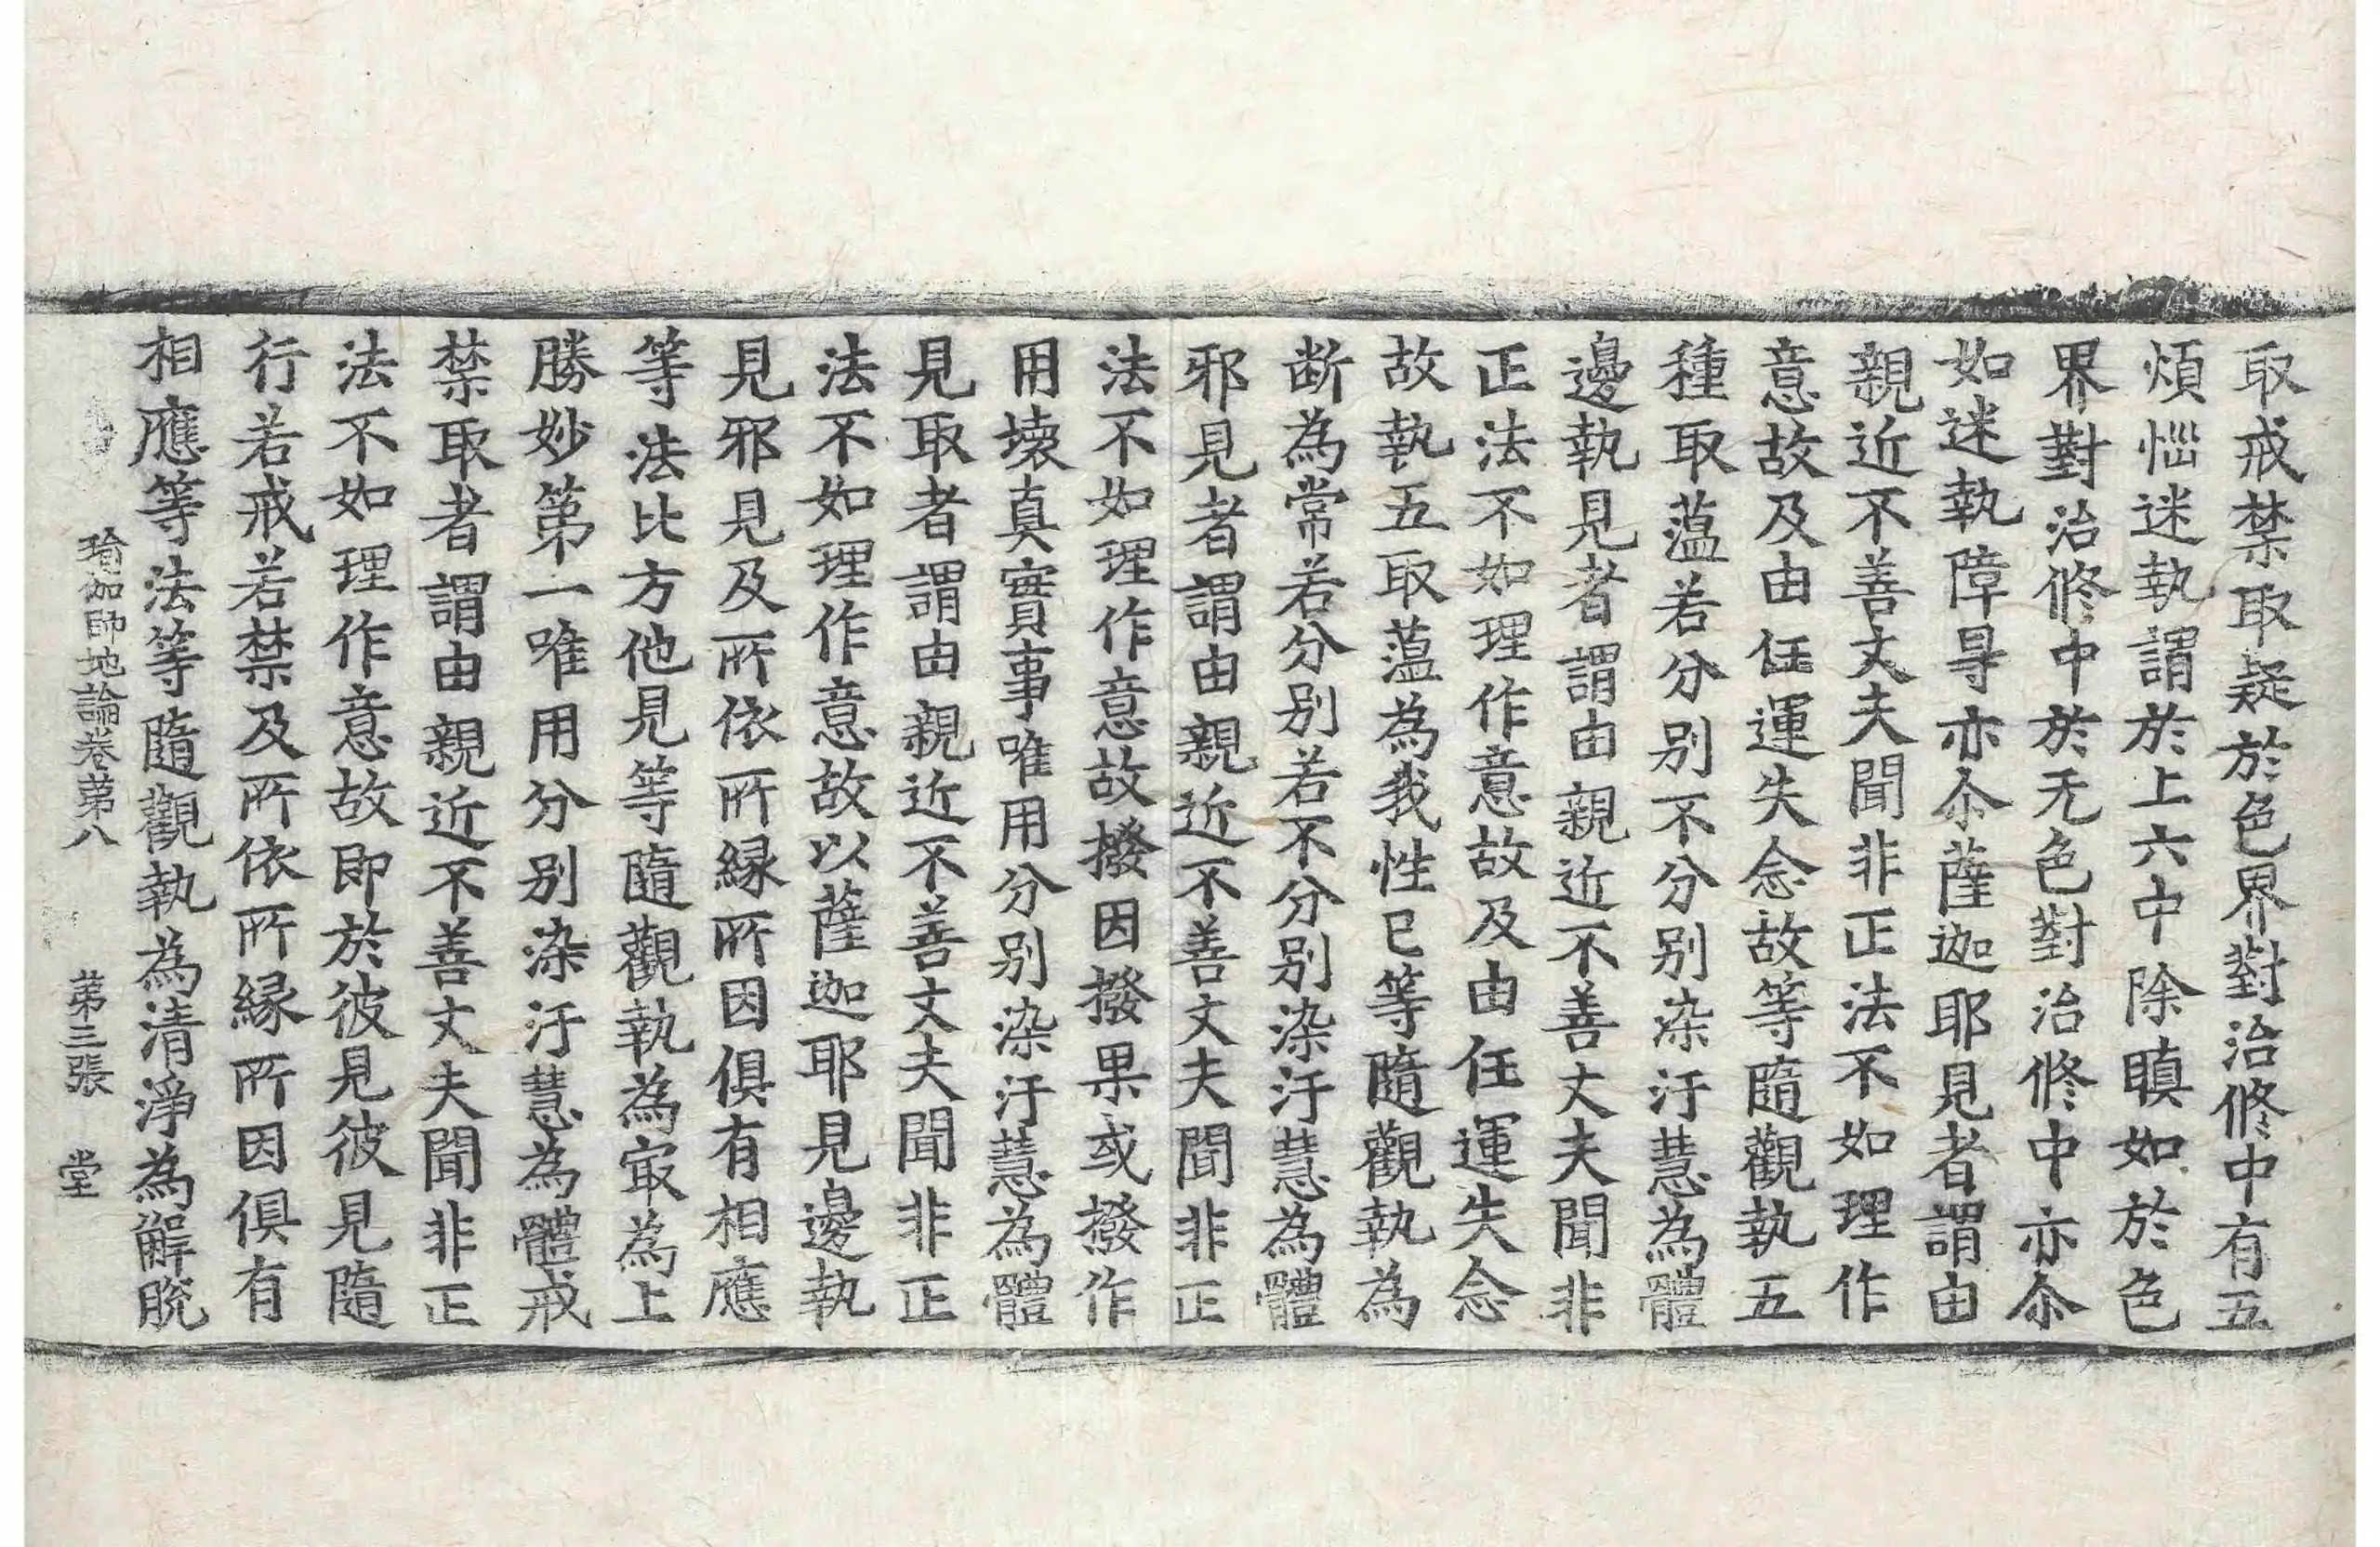 取戒禁取疑於色界對治修中有五
煩惱迷執謂於上六中除瞋如於色
界對治修中於无色對治修中亦尒
如迷執障㝵亦尒薩迦耶見者謂由
親近不善丈夫聞非正法不如理作
意故及由任運失念故等隨觀執五
種取蘊若分別不分別染汙慧為體
邊執見者謂由親近不善丈夫聞非
正法不如理作意故及由任運失念
故執五取蘊為我性已等隨觀執為
断為常若分別若不分別染汙慧為體
邪見者謂由親近不善丈夫聞非正
法不如理作意故撥因撥果或撥作
用壞真實事唯用分別染汙慧為體
見取者謂由親近不善丈夫聞非正
法不如理作意故以薩迦耶見邊執
見邪見及所依所緣所因俱有相應
等法比方他見等隨觀執為冣為上
勝妙第一唯用分別染汙慧為體戒
禁取者謂由親近不善丈夫聞非正
法不如理作意故即於彼見彼見隨
行若戒若禁及所依所緣所因俱有
相應等法等隨觀執為清淨為解脫
瑜伽師地論卷苐八 苐三張 堂